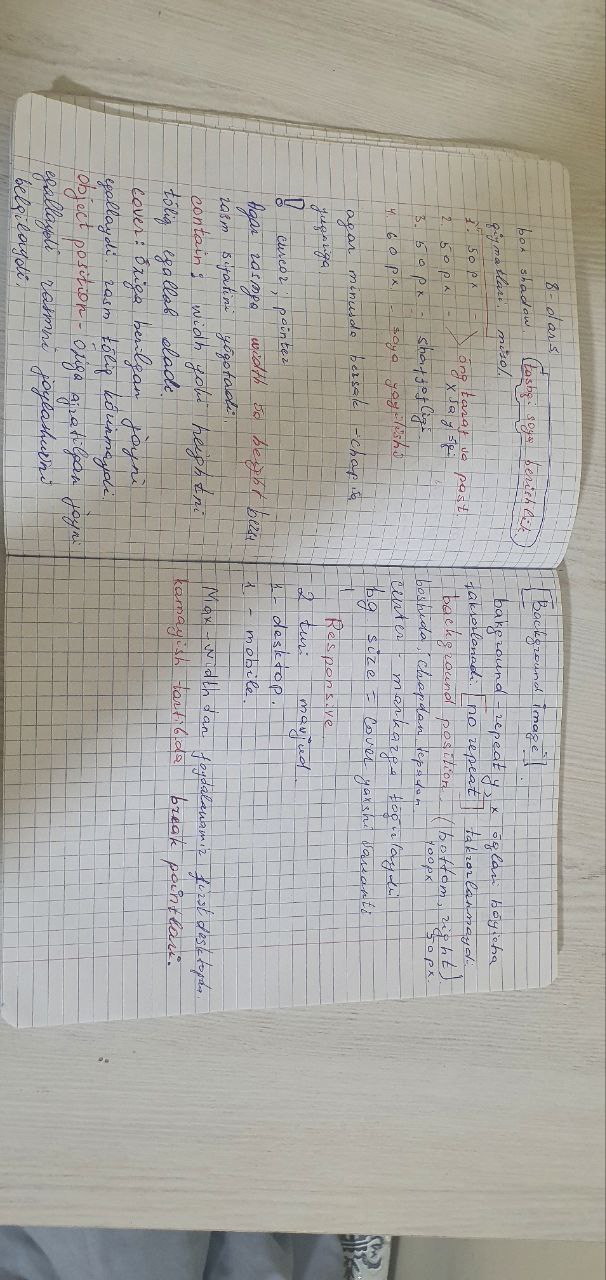 8-dars
box shadow. (tashqi soya berishlik)
qiymatlari. misol,
1. 50px -
2. 50px - ong taraf va past
x va y oqi
3. 50px - shaffofligi
4. 60px - soya yoyilishi
agar minusda bersak - chap va
yuqoriga
cursor; pointer
Agar rasmga width va height bersa
rasm sifatini yoqotadi
contain: width yoki heightni
toliq egallab oladi
cover: oziga berilgan joyni
egallaydi rasm toliq korinmaydi.
Object position - oziga ajratilgan joyni
egallaydi rasmni joylashuvni
belgilaydi.
[Background image].
bakground-repeat y, x oqlari boyicha
takrorlanadi. [no repeat] takrorlanmaydi.
background position. (bottom, right)
100px 50px
boshida, chapdan tepadan
center - markazga togirlaydi
bg size = cover yaxshi varianti
Responsive
2 turi mavjud.
1 - desktop.
1 - mobile.
Max-width dan foydalanamiz first desktopda.
kamayish tartibda break pointlari.